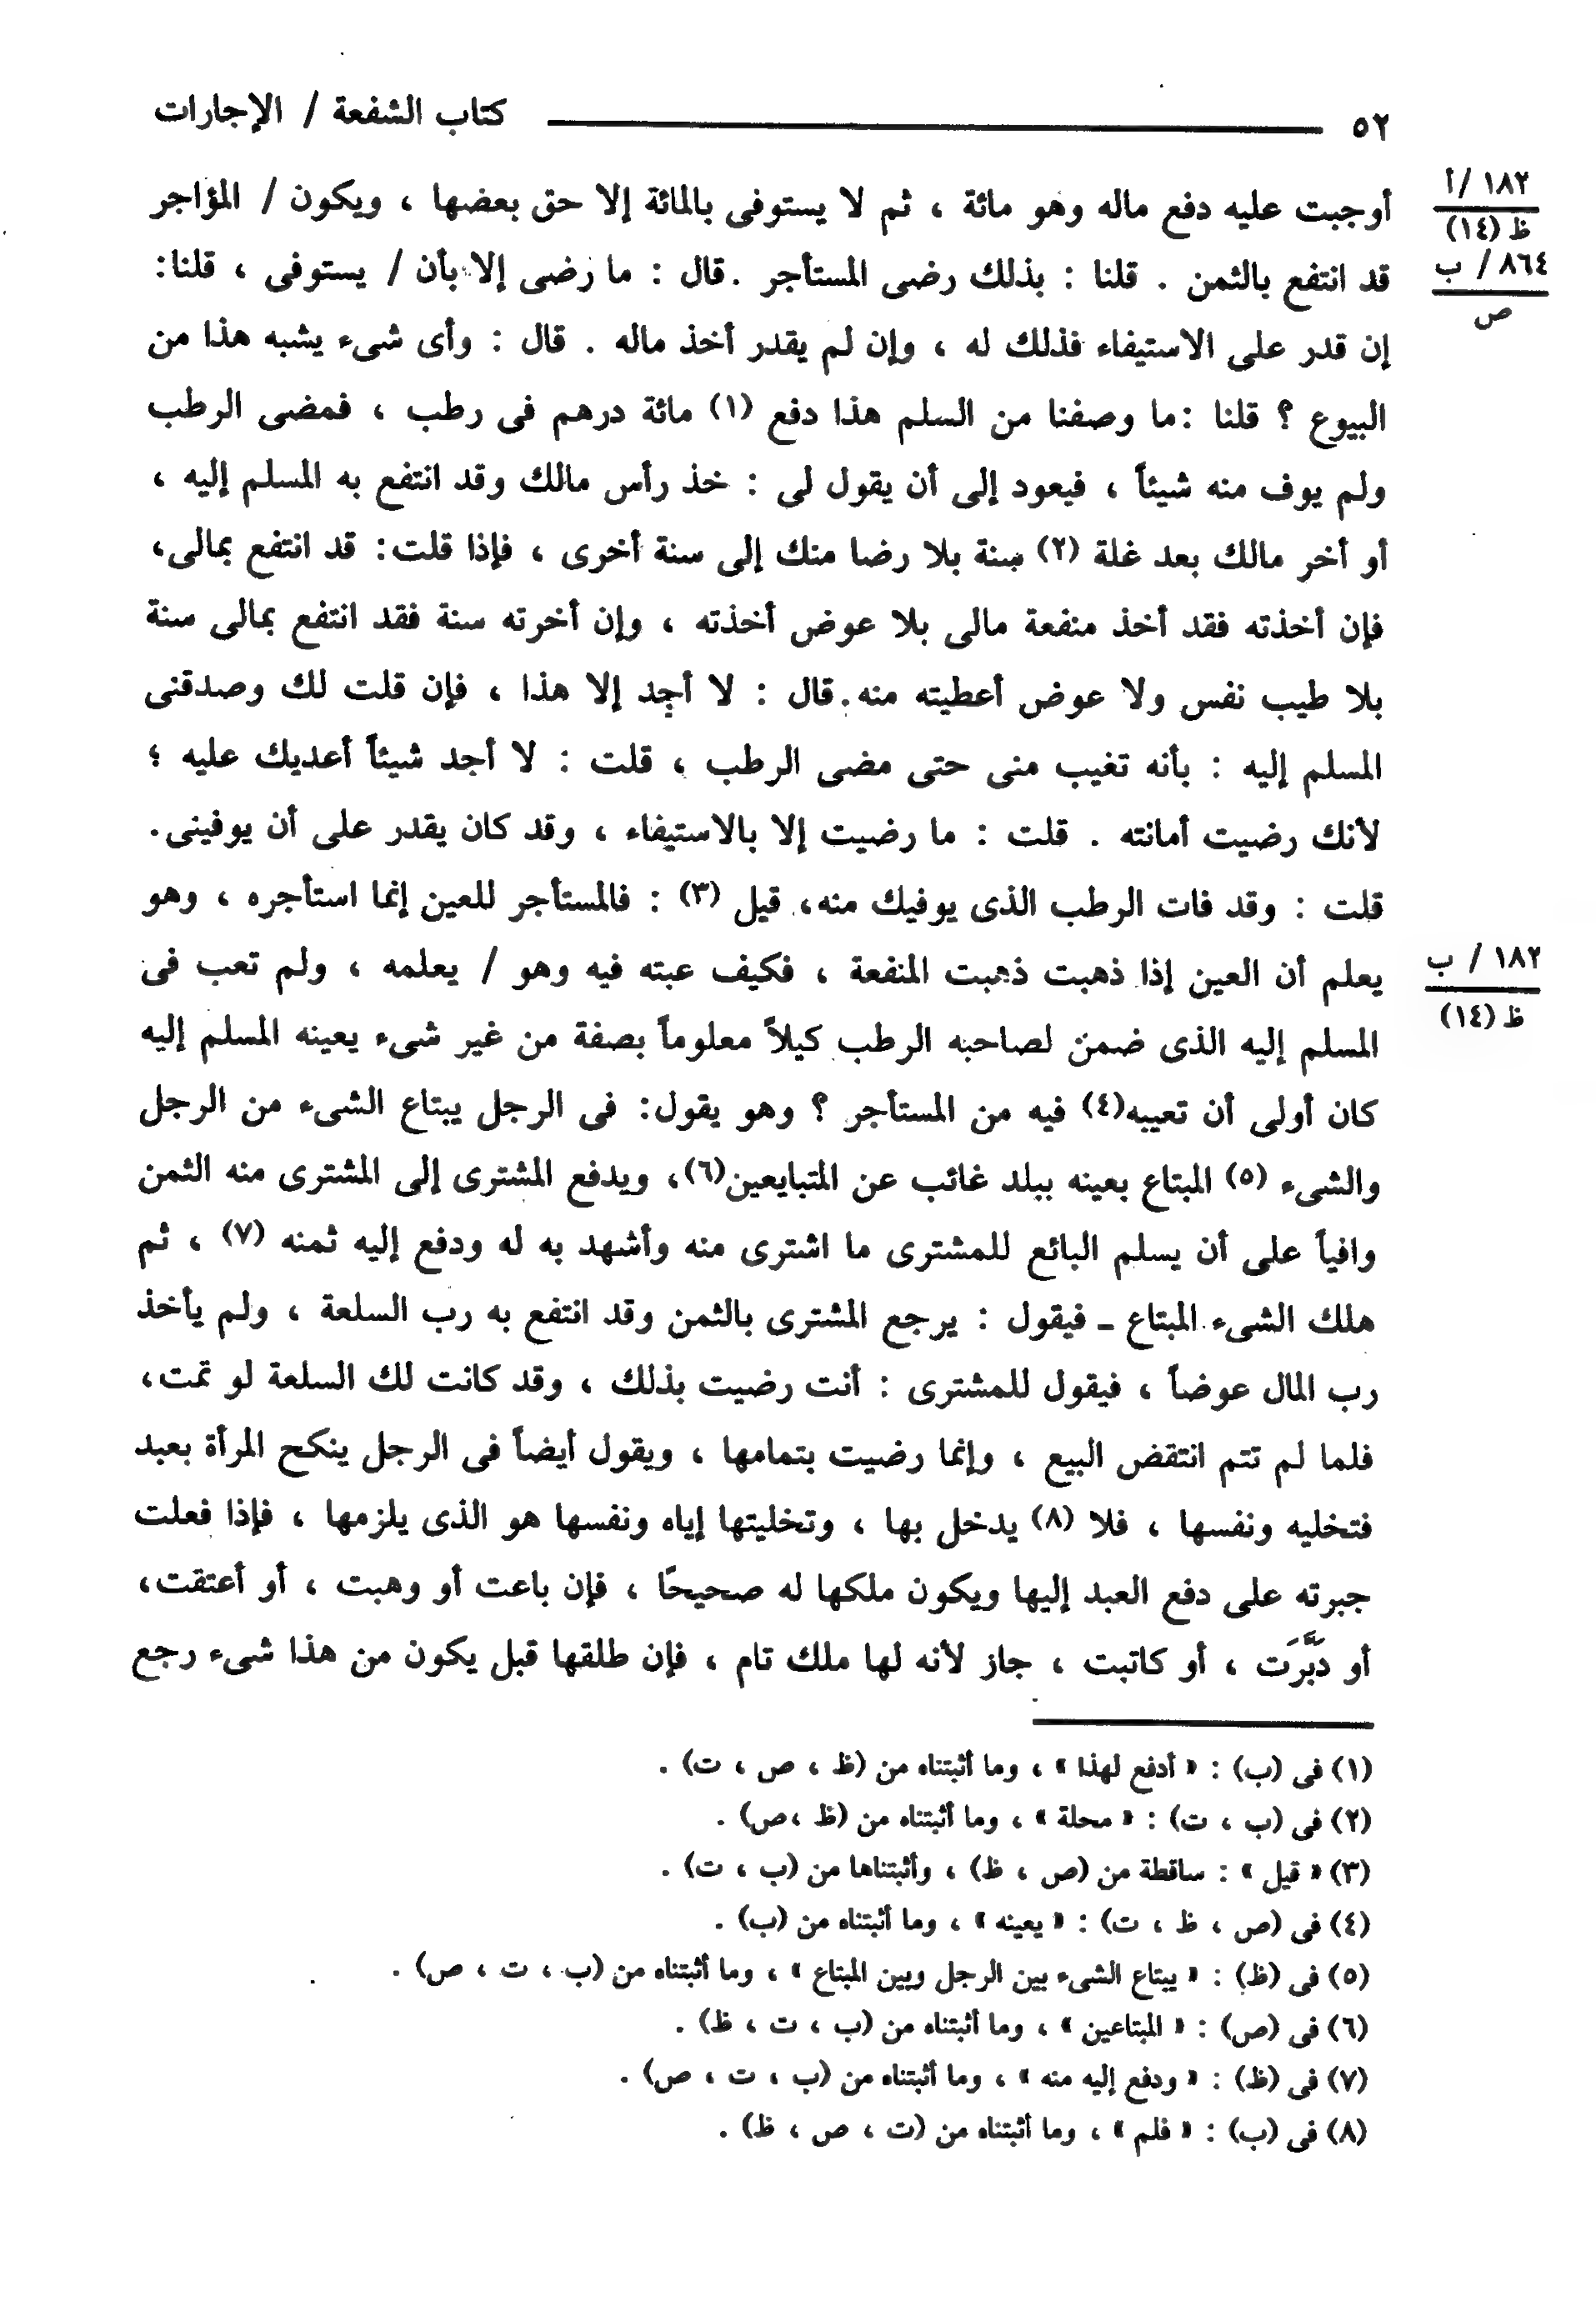 ٥٢ كتاب الشفعة / الإجارات
١٨٢ /أ
ظ (١٤)
٨٦٤ / ب
ص
أوجبت عليه دفع ماله وهو مائة ، ثم لا يستوفى بالمائة إلا حق بعضها ، ويكون / المؤاجر
قد انتفع بالثمن . قلنا : بذلك رضى المستأجر . قال : ما رضى إلا بأن / يستوفى ، قلنا:
إن قدر على الاستيفاء فذلك له ، وإن لم يقدر أخذ ماله . قال : وأى شىء يشبه هذا من
البيوع ؟ قلنا : ما وصفنا من السلم هذا دفع (١) مائة درهم فى رطب ، فمضى الرطب
ولم يوف منه شيئاً ، فيعود إلى أن يقول لى : خذ رأس مالك وقد انتفع به المسلم إليه ،
أو أخر مالك بعد غلة (٢) سنة بلا رضا منك إلى سنة أخرى ، فإذا قلت: قد انتفع بمالى،
فإن أخذته فقد أخذ منفعة مالى بلا عوض أخذته ، وإن أخرته سنة فقد انتفع بمالى سنة
بلا طيب نفس ولا عوض أعطيته منه. قال : لا أجد إلا هذا ، فإن قلت لك وصدقنى
المسلم إليه : بأنه تغيب منى حتى مضى الرطب ، قلت : لا أجد شيئاً أعديك عليه ؛
لأنك رضيت أمانته . قلت : ما رضيت إلا بالاستيفاء ، وقد كان يقدر على أن يوفينى.
قلت : وقد فات الرطب الذى يوفيك منه، قيل (٣) : فالمستأجر للعين إنما استأجره ، وهو
يعلم أن العين إذا ذهبت ذهبت المنفعة ، فكيف عبته فيه وهو / يعلمه ، ولم تعب فى
١٨٢ / ب
ظ (١٤)
المسلم إليه الذى ضمن لصاحبه الرطب كيلاً معلوماً بصفة من غير شىء يعينه المسلم إليه
كان أولى أن تعيبه(٤) فيه من المستأجر ؟ وهو يقول: فى الرجل يبتاع الشىء من الرجل
والشىء (٥) المبتاع بعينه ببلد غائب عن المتبايعين(٦)، ويدفع المشترى إلى المشترى منه الثمن
وافياً على أن يسلم البائع للمشترى ما اشترى منه وأشهد به له ودفع إليه ثمنه (٧) ، ثم
هلك الشىء المبتاع ـ فيقول : يرجع المشترى بالثمن وقد انتفع به رب السلعة ، ولم يأخذ
رب المال عوضاً ، فيقول للمشترى : أنت رضيت بذلك ، وقد كانت لك السلعة لو تمت،
فلما لم تتم انتقض البيع ، وإنما رضيت بتمامها ، ويقول أيضاً فى الرجل ينكح المرأة بعبد
فتخليه ونفسها ، فلا (٨) يدخل بها ، وتخليتها إياه ونفسها هو الذى يلزمها ، فإذا فعلت
جبرته على دفع العبد إليها ويكون ملكها له صحيحًا ، فإن باعت أو وهبت ، أو أعتقت،
أو دَبَّرَت ، أو كاتبت ، جاز لأنه لها ملك تام ، فإن طلقها قبل يكون من هذا شىء رجع
(١) فى (ب) : « أدفع لهذا » ، وما أثبتناه من (ظ ، ص ، ت) .
(٢) فى (ب ، ت) : « محلة » ، وما أثبتناه من (ظ ،ص) .
(٣) « قيل » : ساقطة من (ص ، ظ) ، وأثبتناها من (ب ، ت) .
(٤) فى (ص ، ظ ، ت) : « يعينه » ، وما أثبتناه من (ب) .
(٥) فى (ظ) : « يبتاع الشىء بين الرجل وبين المبتاع » ، وما أثبتناه من (ب ، ت ، ص) .
(٦) فى (ص) : « المبتاعين » ، وما أثبتناه من (ب ، ت ، ظ) .
(٧) فى (ظ) : « ودفع إليه منه » ، وما أثبتناه من (ب ، ت ، ص) .
(٨) فى (ب) : « فلم » ، وما أثبتناه من (ت ، ص ، ظ) .